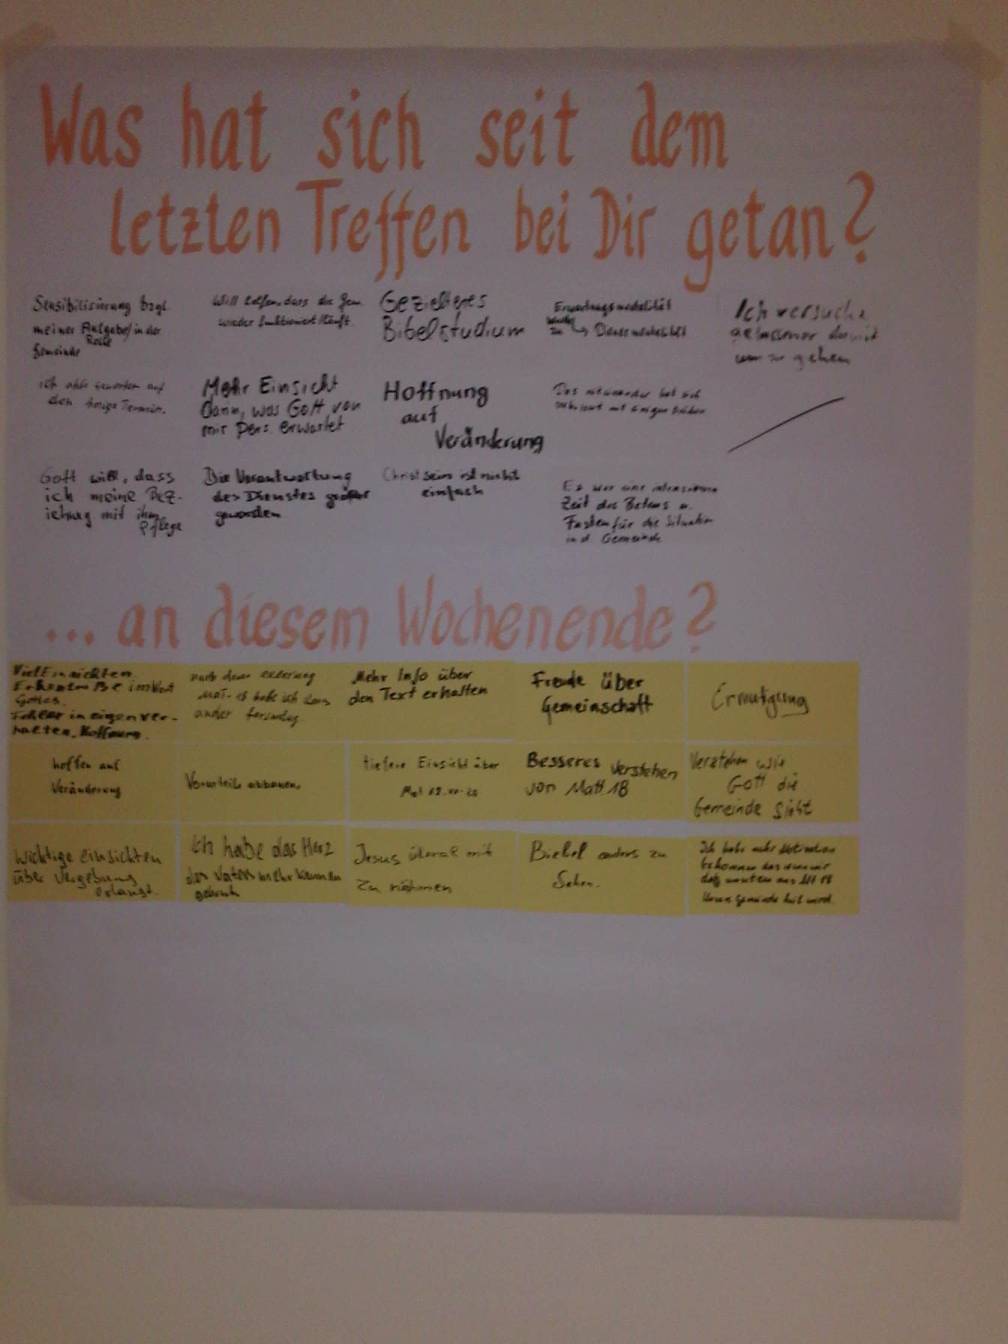 Was hat sich seit dem
letzten Treffen bei Dir getan?
Sensibilisierung bzgl.
meiner Aufgabe/in der
Rolle
Gemeinde
Will helfen, dass die Gem.
wieder funktioniert/läuft.
Gezielteres
Bibelstudium
Erwartungsmentalität
wurde
zu → Dienermentalität
Ich versuche
gelassener damit
um zu gehen
ich auf
den Termin.
Mehr Einsicht
dann, was Gott von
mir pers. erwartet
Hoffnung
auf
Veränderung
Das miteinander hat sich
mit einigen
Gott will, dass
ich meine Bez-
iehung mit ihm
Pflege
Die Verantwortung
des Dienstes größer
geworden
Christ sein ist nicht
einfach
Es war eine intensivere
Zeit des Betens u.
Fasten für die Situation
in d. Gemeinde
... an diesem Wochenende?
Viel Einsichten
Erkentniße im Wort
Gottes.
Fehler in eigen ver-
halten. Hoffnung.
nach
Mat. 18 habe ich
Mehr Info über
den Text erhalten
Freude über
Gemeinschaft
Ermutigung
hoffen auf
Veränderung
Vorurteile abbauen.
tiefere Einsicht über
Mat
Besseres verstehen
von Matt 18
Verstehen wie
Gott die
Gemeinde sieht
Wichtige einsichten
über Vergebung
erlangt.
Ich habe das Herz
des Vaters mehr kennen
gelernt
Jesus überall mit
zu nehmen
Bibel anders zu
Sehen.
Ich habe mehr
bekommen das
daß
Unsere Gemeinde heil wird.